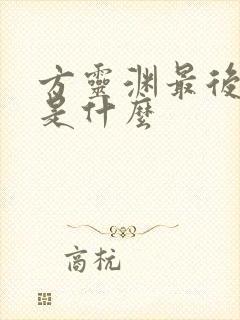 方靈渊最後
是什麼
商杬